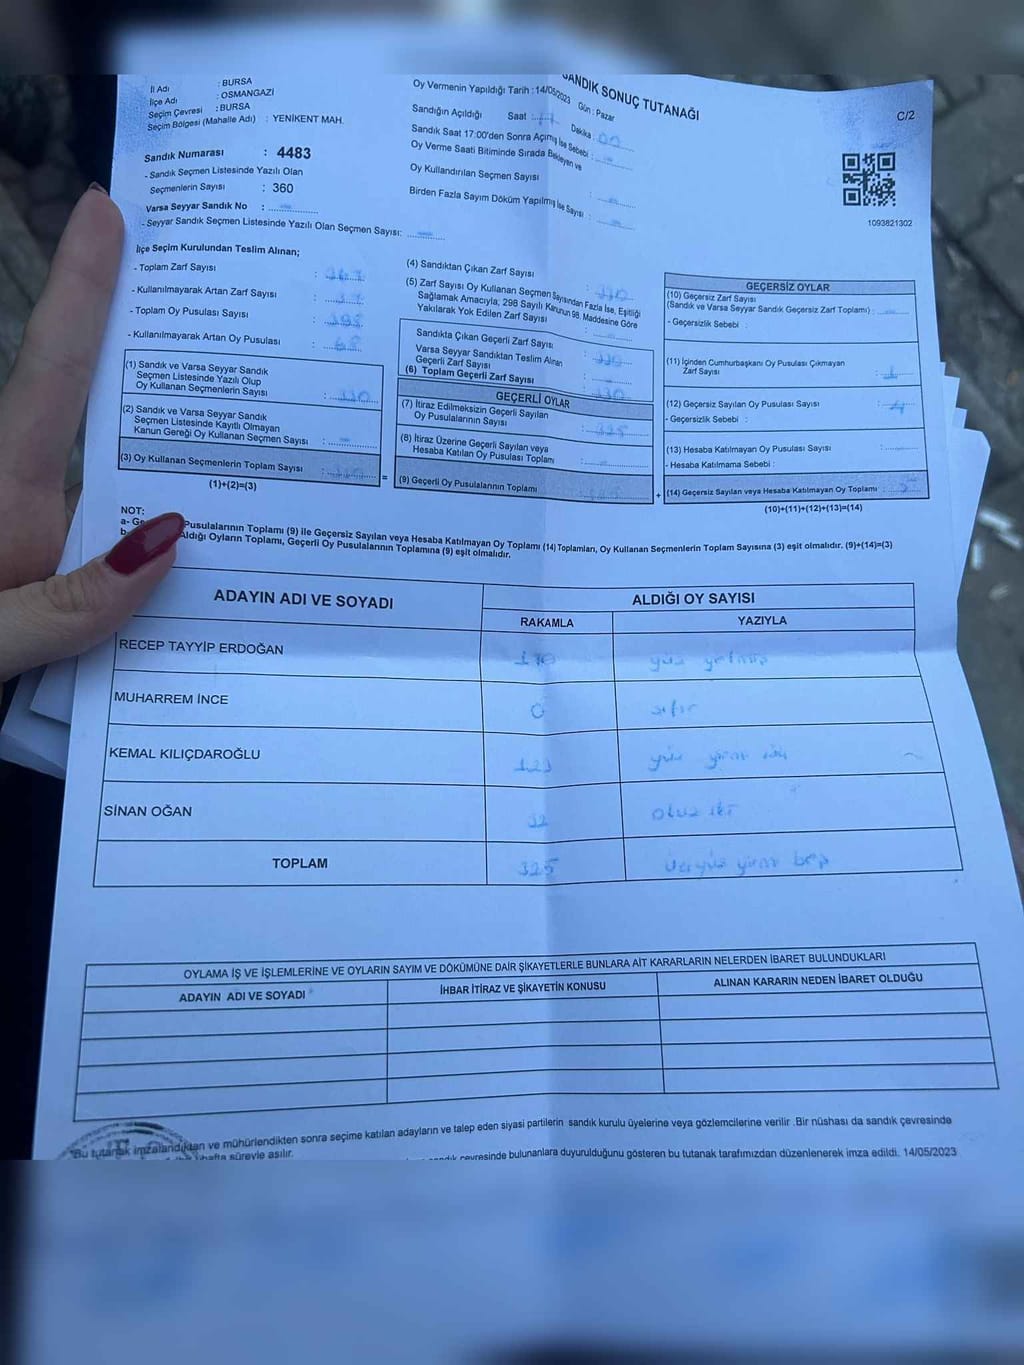 SANDIK SONUÇ TUTANAĞI
C/2
İl Adı : BURSA
İlçe Adı : OSMANGAZİ
Seçim Çevresi : BURSA
Seçim Bölgesi (Mahalle Adı) : YENİKENT MAH.
Sandık Numarası : 4483
- Sandık Seçmen Listesinde Yazılı Olan
Seçmenlerin Sayısı : 360
Varsa Seyyar Sandık No :
- Seyyar Sandık Seçmen Listesinde Yazılı Olan Seçmen Sayısı:
Oy Vermenin Yapıldığı Tarih : 14/05/2023 Gün : Pazar
Sandığın Açıldığı Saat 17 Dakika : 00
Sandık Saat 17:00'den Sonra Açımış İse Sebebi :
Oy Verme Saati Bitiminde Sırada Bekleyen ve
Oy Kullandırılan Seçmen Sayısı :
Birden Fazla Sayım Döküm Yapılmış İse Sayısı :
1093821302
İlçe Seçim Kurulundan Teslim Alınan;
- Toplam Zarf Sayısı :
- Kullanılmayarak Artan Zarf Sayısı :
- Toplam Oy Pusulası Sayısı :
- Kullanılmayarak Artan Oy Pusulası :
(1) Sandık ve Varsa Seyyar Sandık
Seçmen Listesinde Yazılı Olup
Oy Kullanan Seçmenlerin Sayısı : 330
(2) Sandık ve Varsa Seyyar Sandık
Seçmen Listesinde Kayıtlı Olmayan
Kanun Gereği Oy Kullanan Seçmen Sayısı :
(3) Oy Kullanan Seçmenlerin Toplam Sayısı : 330
(1)+(2)=(3)
(4) Sandıktan Çıkan Zarf Sayısı : 330
(5) Zarf Sayısı Oy Kullanan Seçmen Sayısından Fazla İse, Eşitliği
Sağlamak Amacıyla; 298 Sayılı Kanunun 98. Maddesine Göre
Yakılarak Yok Edilen Zarf Sayısı :
Sandıkta Çıkan Geçerli Zarf Sayısı : 330
Varsa Seyyar Sandıktan Teslim Alınan
Geçerli Zarf Sayısı :
(6) Toplam Geçerli Zarf Sayısı : 330
GEÇERLİ OYLAR
(7) İtiraz Edilmeksizin Geçerli Sayılan
Oy Pusulalarının Sayısı : 325
(8) İtiraz Üzerine Geçerli Sayılan veya
Hesaba Katılan Oy Pusulası Toplamı :
(9) Geçerli Oy Pusulalarının Toplamı : 325
GEÇERSİZ OYLAR
(10) Geçersiz Zarf Sayısı
(Sandık ve Varsa Seyyar Sandık Geçersiz Zarf Toplamı) :
- Geçersizlik Sebebi :
(11) İçinden Cumhurbaşkanı Oy Pusulası Çıkmayan
Zarf Sayısı : 1
(12) Geçersiz Sayılan Oy Pusulası Sayısı : 4
- Geçersizlik Sebebi :
(13) Hesaba Katılmayan Oy Pusulası Sayısı :
- Hesaba Katılmama Sebebi :
(14) Geçersiz Sayılan veya Hesaba Katılmayan Oy Toplamı : 5
(10)+(11)+(12)+(13)=(14)
NOT:
a- Pusulalarının Toplamı (9) ile Geçersiz Sayılan veya Hesaba Katılmayan Oy Toplamı (14) Toplamları, Oy Kullanan Seçmenlerin Toplam Sayısına (3) eşit olmalıdır. (9)+(14)=(3)
Aldığı Oyların Toplamı, Geçerli Oy Pusulalarının Toplamına (9) eşit olmalıdır.
ADAYIN ADI VE SOYADI ALDIĞI OY SAYISI
RAKAMLA YAZIYLA
RECEP TAYYİP ERDOĞAN 170 yüz yetmiş
MUHARREM İNCE 0 sıfır
KEMAL KILIÇDAROĞLU 123 yüz yirmi
SİNAN OĞAN 32 otuz iki
TOPLAM 325 üçyüz yirmi beş
OYLAMA İŞ VE İŞLEMLERİNE VE OYLARIN SAYIM VE DÖKÜMÜNE DAİR ŞİKAYETLERLE BUNLARA AİT KARARLARIN NELERDEN İBARET BULUNDUKLARI
ADAYIN ADI VE SOYADI İHBAR İTİRAZ VE ŞİKAYETİN KONUSU ALINAN KARARIN NEDEN İBARET OLDUĞU
"Bu tutanak imzalandıktan ve mühürlendikten sonra seçime katılan adayların ve talep eden siyasi partilerin sandık kurulu üyelerine veya gözlemcilerine verilir .Bir nüshası da sandık çevresinde
hafta süreyle asılır.
çevresinde bulunanlara duyurulduğunu gösteren bu tutanak tarafımızdan düzenlenerek imza edildi. 14/05/2023